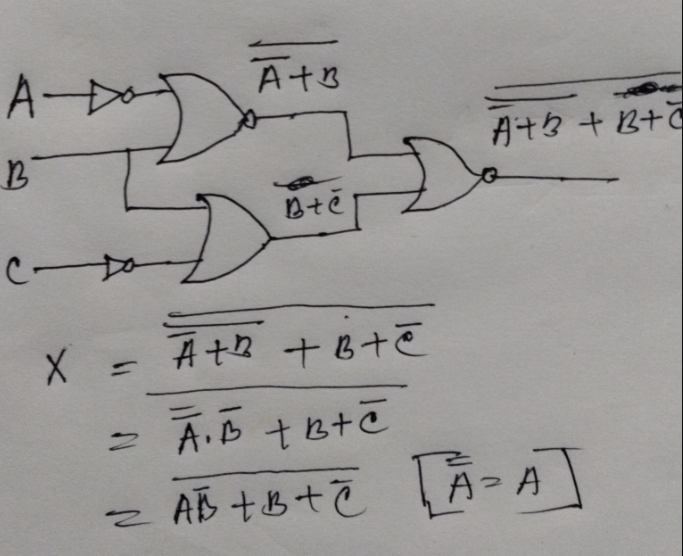 A̅+B̅
A
A̅+B̅ + B+C̅
B
B+C̅
C
X = A̅+B̅ + B+C̅
= A̿.B̅ + B+C̅
= AB̅ + B + C̅ [A̿ = A]